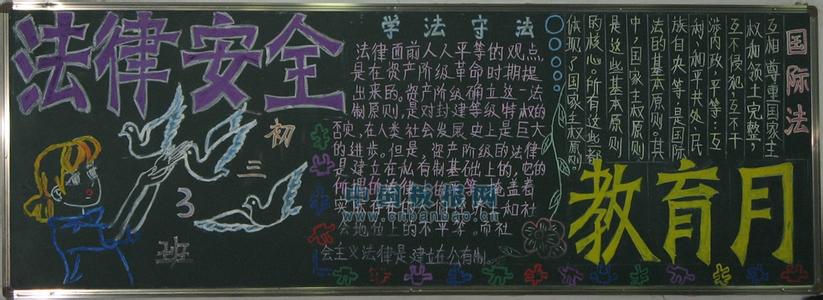 法律安全
初
三
3
班
学法守法
法律面前人人平等的观点,
是在资产阶级革命时期提
出来的。资产阶级确立这一法
制原则,是对封建等级特权的
否定,在人类社会发展史上是巨大
的进步。但是,资产阶级的法律
是建立在私有制基础上的,它的
掩盖着
和社
会地位上的不平等。而社
会主义法律是建立在公有制。
中国板报网
www.cnbanbao.cn
国际法
互相尊重国家主
权和领土完整,
互不侵犯,互不干
涉内政,平等,互
利,和平共处,民
族自决等,是国际
法的基本原则。其
中,国家主权原则
是这些基本原则
的核心。所有这些都
体现了国家主权原则
教育月